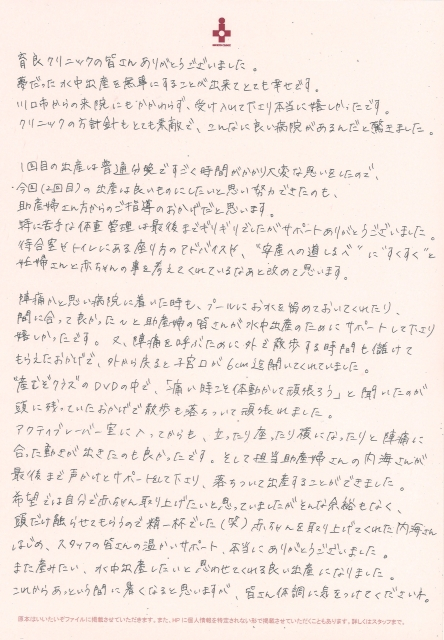 育良クリニックの皆さんありがとうございました。
夢だった水中出産を無事にすることが出来てとても幸せです。
川口市からの来院にもかかわらず、受け入れて下さり本当に嬉しかったです。
クリニックの方針もとても素敵で、こんなに良い病院があるんだと驚きました。
1回目の出産は普通分娩ですごく時間がかかり大変な思いをしたので、
今回(2回目)の出産は良いものにしたいと思い努力できたのも、
助産婦さん方からのご指導のおかげだと思います。
特に苦手な体重管理は最後までギリギリでしたがサポートありがとうございました。
待合室やトイレにある座り方のアドバイスや、"安産への道しるべ"に"すくすく"と
妊婦さんと赤ちゃんの事を考えてくれているなあと改めて思います。
陣痛かと思い病院に着いた時も、プールにお水を留めておいてくれたり、
間に合って良かった〜と助産婦の皆さんが水中出産のためにサポートして下さり
嬉しかったです。又、陣痛を呼ぶために外を散歩する時間も儲けて
もらえたおかげで、外から戻ると子宮口が6cm迄開いてくれていました。
"産むぞクラス"のDVDの中で、「痛い時こそ体動かして頑張ろう」と聞いたのが
頭に残っていたおかげで散歩も落ちついて頑張れました。
アクティブレーバー室に入ってからも、立ったり座ったり横になったりと陣痛に
合った動きが出きたのも良かったです。そして担当助産婦さんの内海さんが
最後まで声かけとサポートをして下さり、落ちついて出産することができました。
希望では自分で赤ちゃん取り上げたいと思っていましたがそんな余裕もなく、
頭だけ触らせてもらうので精一杯でした(笑)赤ちゃんを取り上げてくれた内海さん
はじめ、スタッフの皆さんの温かいサポート、本当にありがとうございました。
また産みたい、水中出産したいと思わせてくれる良い出産になりました。
これからあっという間に暑くなると思いますが、皆さん体調に気をつけてくださいね。
原本はいいたいぞファイルに掲載させていただきます。また、HPに個人情報を特定されない形で掲載させていただくこともあります。詳しくはスタッフまで。